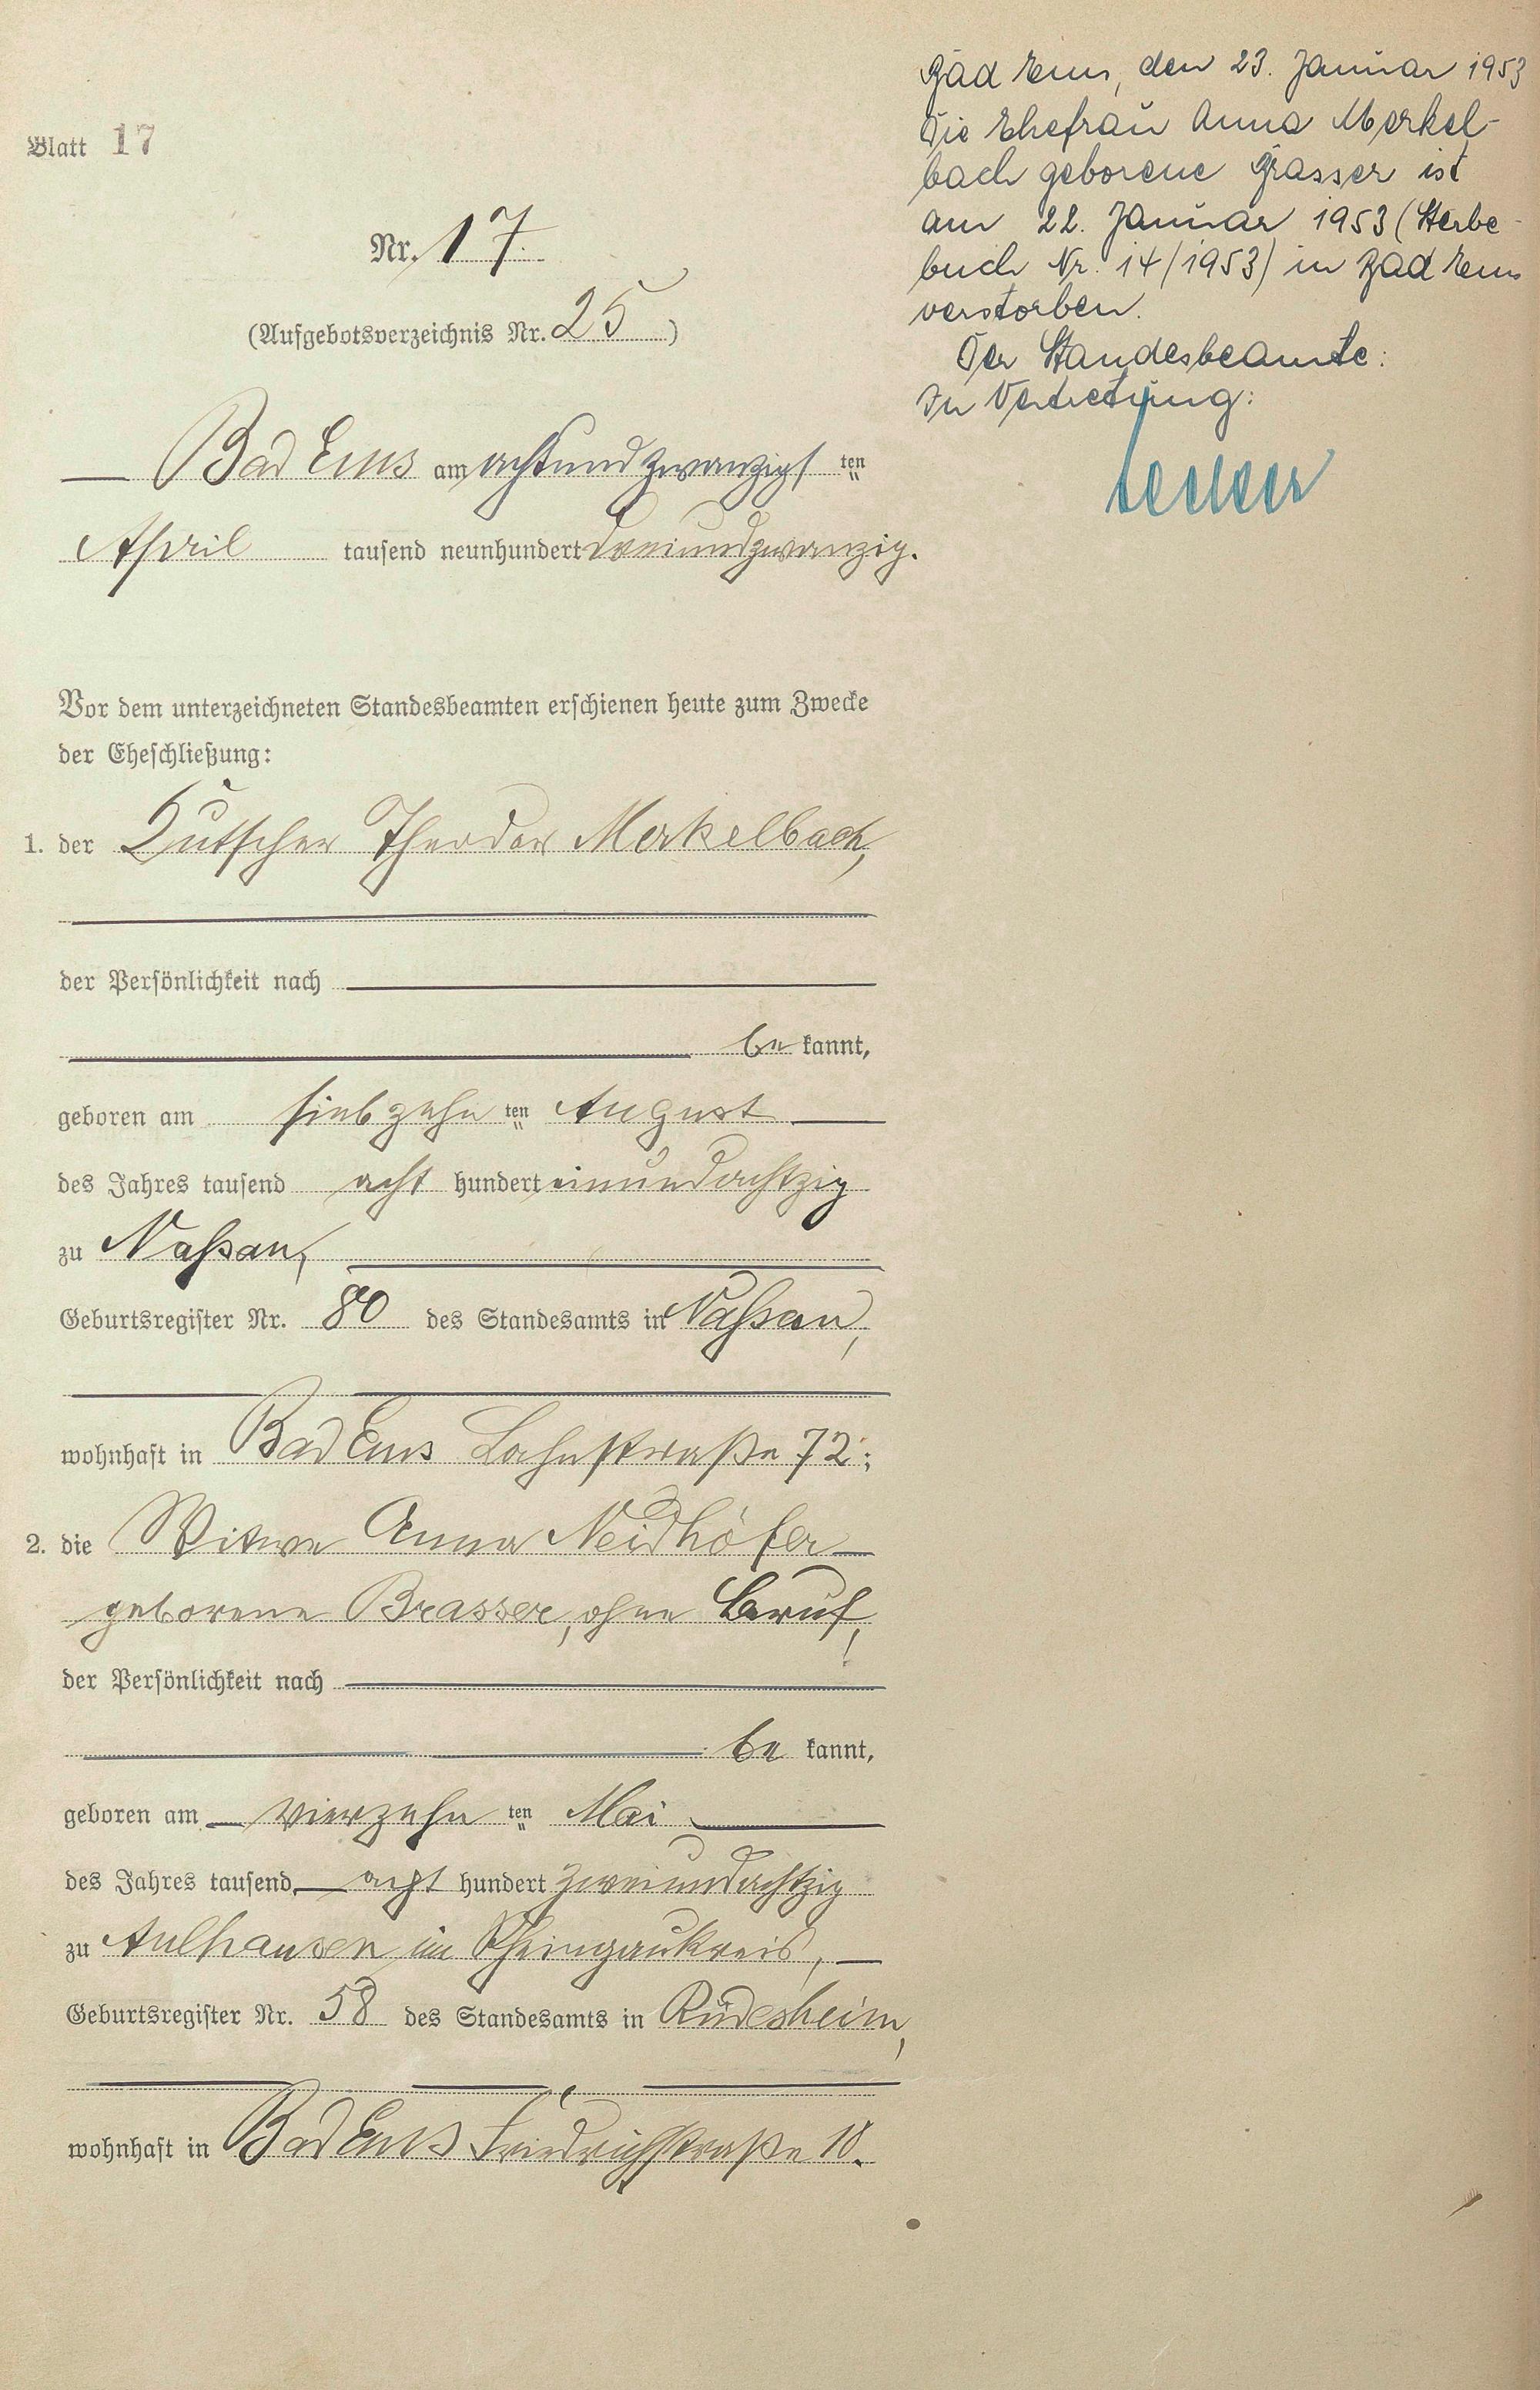 Blatt 17
Nr. 17.
(Aufgebotsverzeichnis Nr. 25)
Bad Ems am achtundzwanzigsten
April tausend neunhundert dreiundzwanzig.
Vor dem unterzeichneten Standesbeamten erschienen heute zum Zwecke
der Eheschließung:
1. der Kutscher Theodor Merkelbach,
der Persönlichkeit nach
be kannt,
geboren am siebzehn ten August
des Jahres tausend acht hundert einundachtzig
zu Naßau,
Geburtsregister Nr. 80 des Standesamts in Naßau,
wohnhaft in Bad Ems Lahnstraße 72;
2. die Witwe Anna Neidhöfer
geborene Brasser, ohne Beruf,
der Persönlichkeit nach
be kannt,
geboren am vierzehn ten Mai
des Jahres tausend acht hundert zweiundachtzig
zu Aulhausen im Rheingaukreis,
Geburtsregister Nr. 58 des Standesamts in Rüdesheim,
wohnhaft in Bad Ems Friedrichstraße 10.
Bad Ems, den 23. Januar 1953
Die Ehefrau Anna Merkel-
bach geborene Brasser ist
am 22. Januar 1953 (Sterbe-
buch Nr. 14/1953) in Bad Ems
verstorben.
Der Standesbeamte:
In Vertretung: